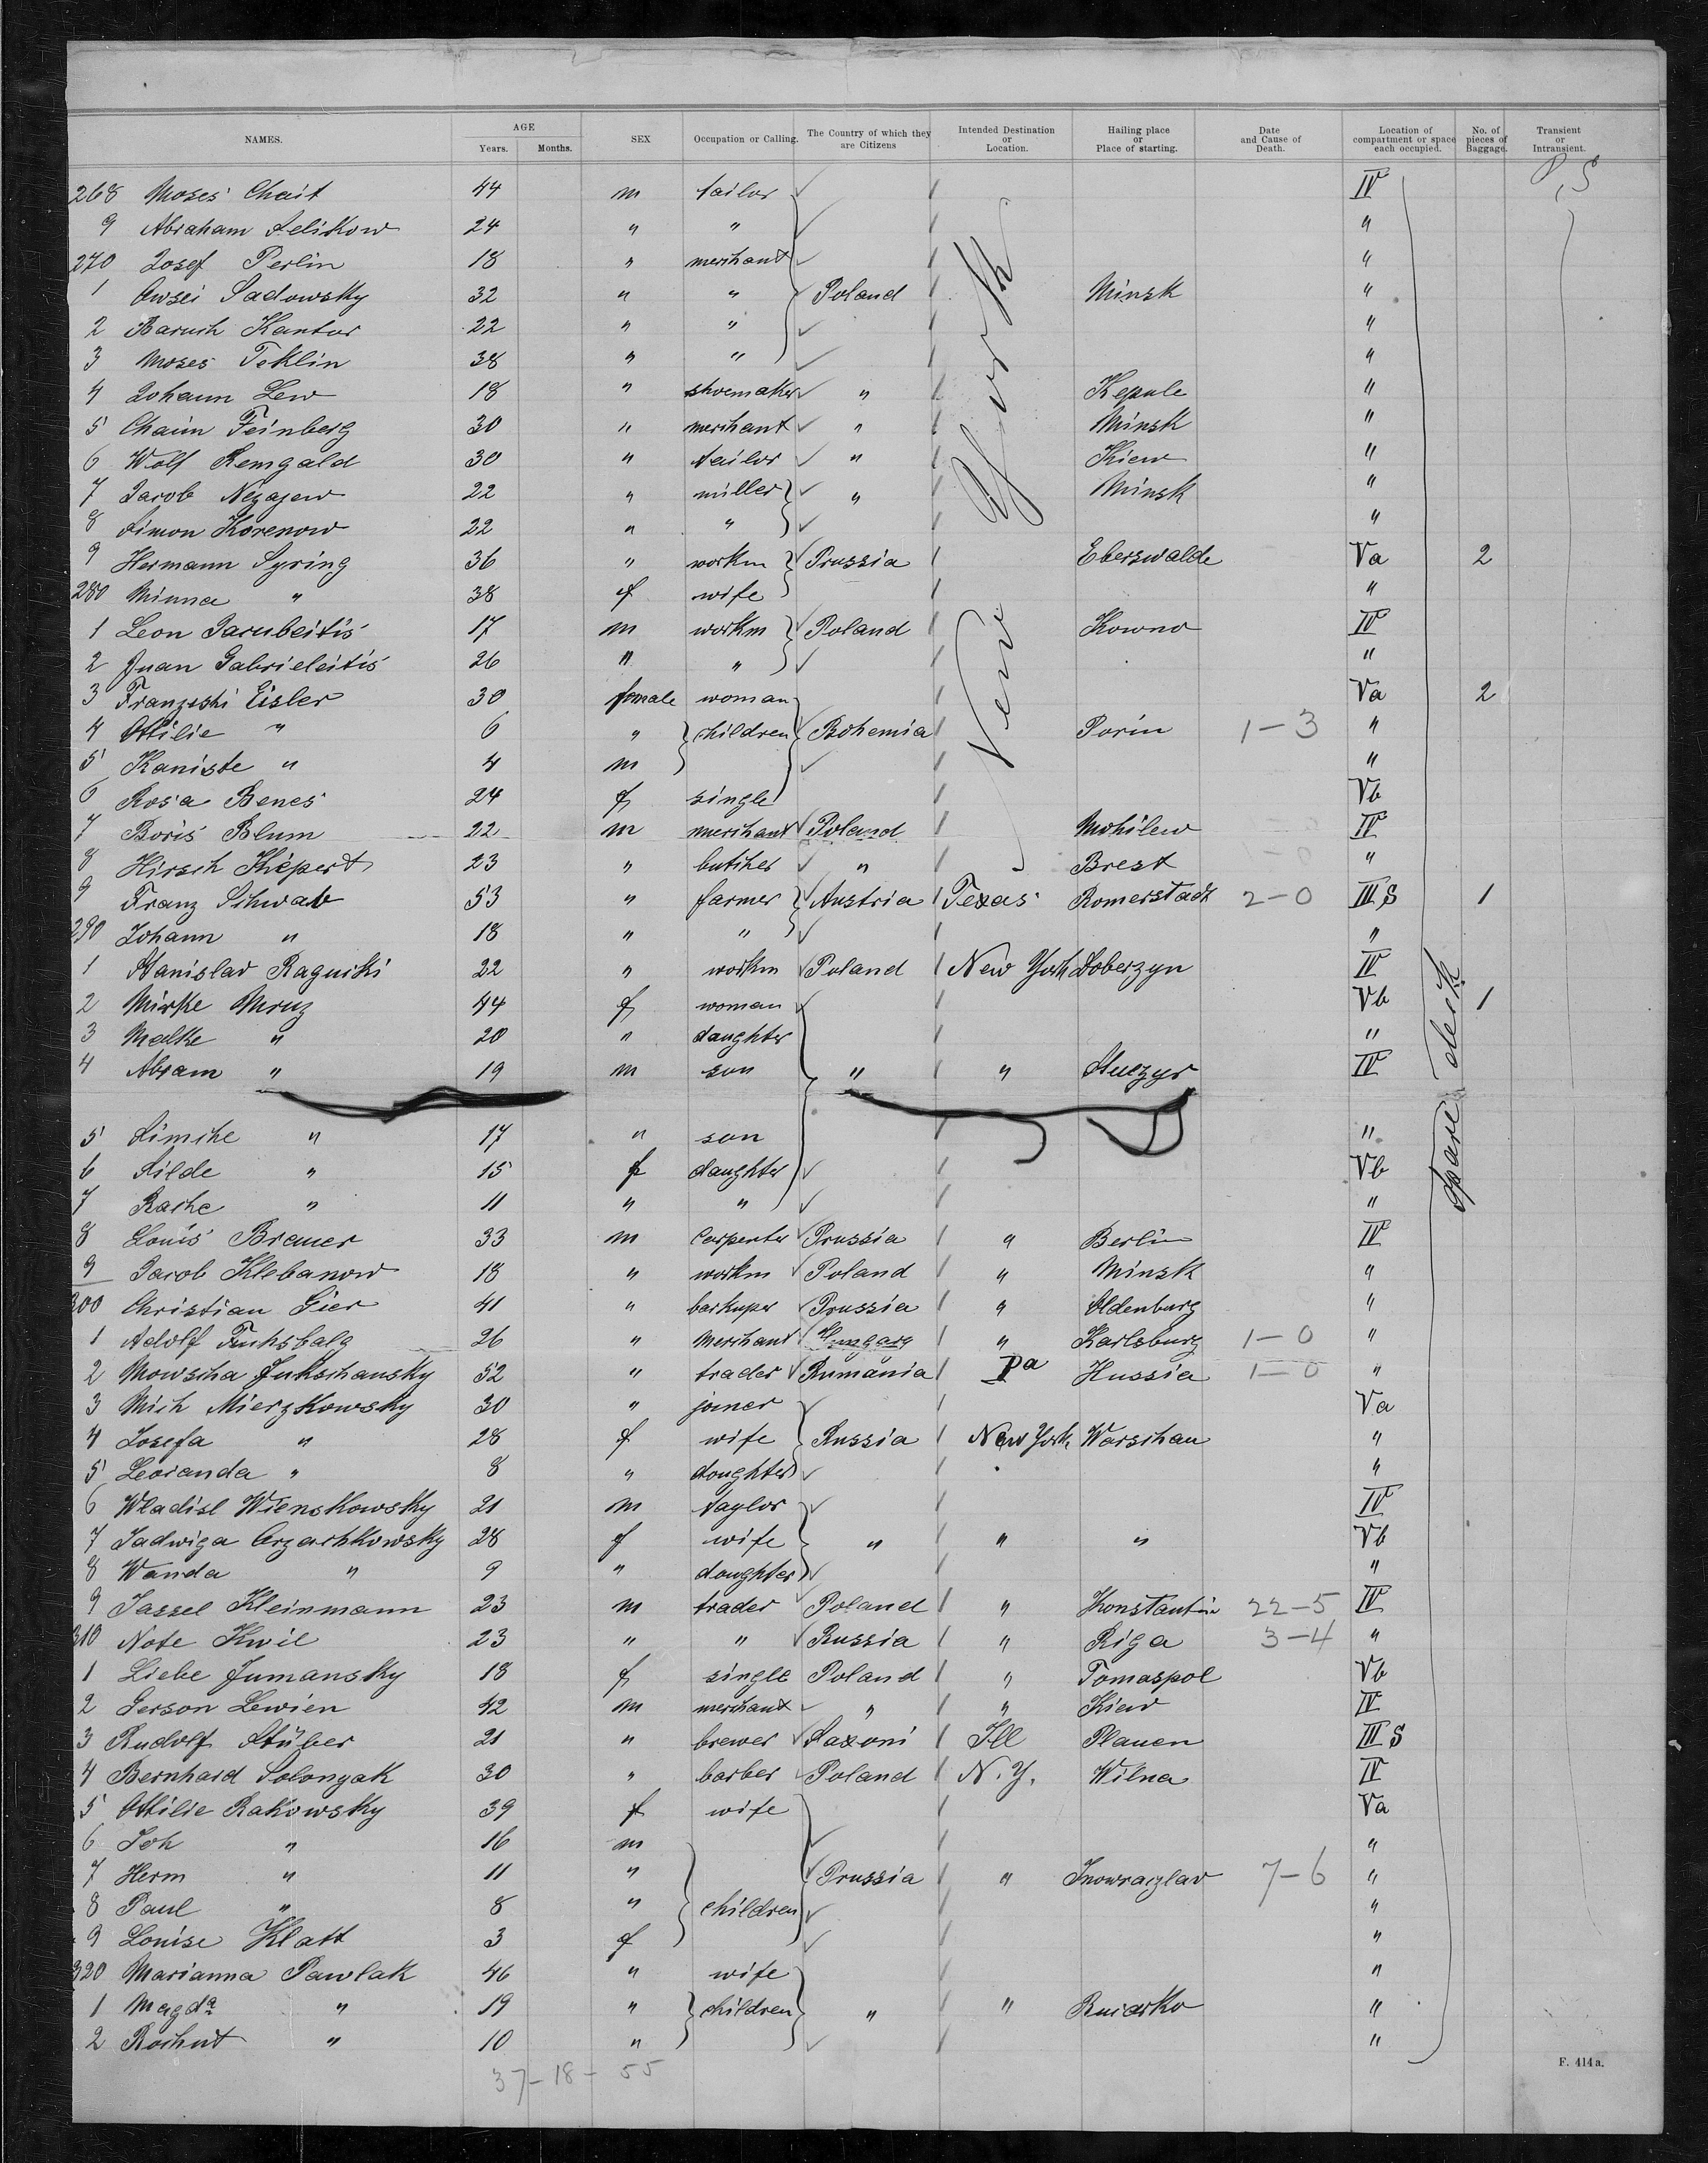 NAMES. AGE Years. Months. SEX Occupation or Calling. The Country of which they are Citizens Intended Destination or Location. Hailing place or Place of starting. Date and Cause of Death. Location of compartment or space each occupied. No. of pieces of Baggage. Transient or Intransient.
268 Moses Chait 44 m tailor IV
9 Abraham Selikow 24 " " "
270 Josef Perlin 18 " merchant "
1 Owsei Sadowsky 32 " " Poland Minsk "
2 Baruch Kantor 22 " " "
3 Moses Teklin 38 " " "
4 Johann Lew 18 " shoemaker " Kepule "
5 Chaim Feinberg 30 " merchant " Minsk "
6 Wolf Remgald 30 " tailor " Kiew "
7 Jacob Nezajew 22 " miller " Minsk "
8 Simon Korenow 22 " " "
9 Hermann Syring 36 " workm Prussia Eberswalde Va 2
280 Minna " 38 f wife "
1 Leon Jacubeitis 17 m workm Poland Kowno IV
2 Juan Gabrieleitis 26 " " "
3 Franzeski Eisler 30 female woman Va 2
4 Ottilie " 6 " children Bohemia Porin 1-3 "
5 Kaniste " 4 m "
6 Rosa Benes 24 f single Vb
7 Boris Blum 22 m merchant Poland Mohilew IV
8 Hirsch Kiepert 23 " butcher " Brest "
New York
9 Franz Schwab 53 " farmer Austria Texas Romerstadt 2-0 III S 1
290 Johann " 18 " " "
1 Stanislav Raguiski 22 " workm Poland New York Doberzyn IV
2 Mirke Mruz 44 f woman Vb 1
3 Malke " 20 " daughter "
4 Abram " 19 m son " " Stuczyr IV
5 Simche " 17 " son "
6 Silde " 15 f daughter Vb
7 Rache " 11 " " "
spare deck
8 Louis Bremer 33 m Carpenter Prussia " Berlin IV
9 Jacob Klebanow 18 " workm Poland " Minsk "
300 Christian Gier 41 " barkeeper Prussia " Oldenburg "
1 Adolf Fuchsbalg 26 " merchant Hungary " Karlsburg 1-0 "
2 Mowscha Jukschansky 52 " trader Rumänia Pa Hussia 1-0 "
3 Mich Mierzkowsky 30 " joiner Va
4 Josefa " 28 f wife Russia New York Warschau "
5 Leocanda " 8 " doughter "
6 Wladisl Wienskowsky 21 m taylor IV
7 Jadwiga Orzachkowsky 28 f wife " " " Vb
8 Wanda " 9 " doughter "
9 Jassel Kleinmann 23 m trader Poland " Konstantin 22-5 IV
310 Note Kwil 23 " " Russia " Riga 3-4 "
1 Liebe Jumansky 18 f single Poland " Tomaspol Vb
2 Gerson Lewien 42 m merchant " " Kiew IV
3 Rudolf Stüber 21 " brewer Saxoni Ill Plauen III S
4 Bernhard Solonzak 30 " barber Poland N.Y. Wilna IV
5 Ottilie Rakowsky 39 f wife Va
6 Joh " 16 m "
7 Herm " 11 " Prussia " Inowrazlav 7-6 "
8 Paul " 8 " children "
9 Louise Klatt 3 f "
320 Marianna Pawlak 46 " wife "
1 Magda " 19 " children " " "
2 Rochut " 10 " "
37-18-55
F. 414a.